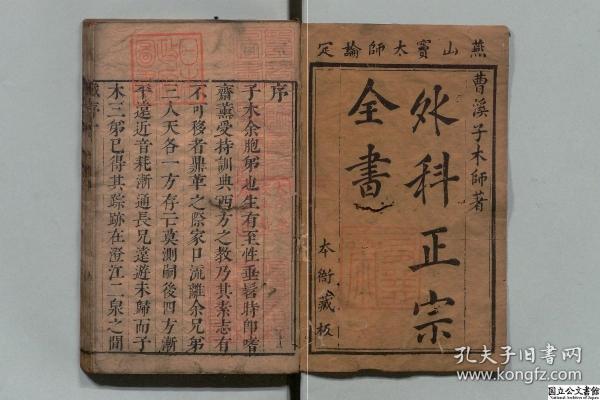 燕山竇太師論定
曹溪子木師著
外科正宗
全書
本衙藏板
序
子木余胞弟也生有至性垂髫時即嗜
齋薰受持訓典西方之教乃其素志有
不可移者鼎革之際家口流離余兄弟
三人天各一方存亡莫測嗣後四方漸
平遠近音耗漸通長兄遠遊未歸而子
木三弟已得其踪跡在澄江二泉之間
孔夫子旧书网
www.kongfz.com
国立公文書館
National Archives of Japan